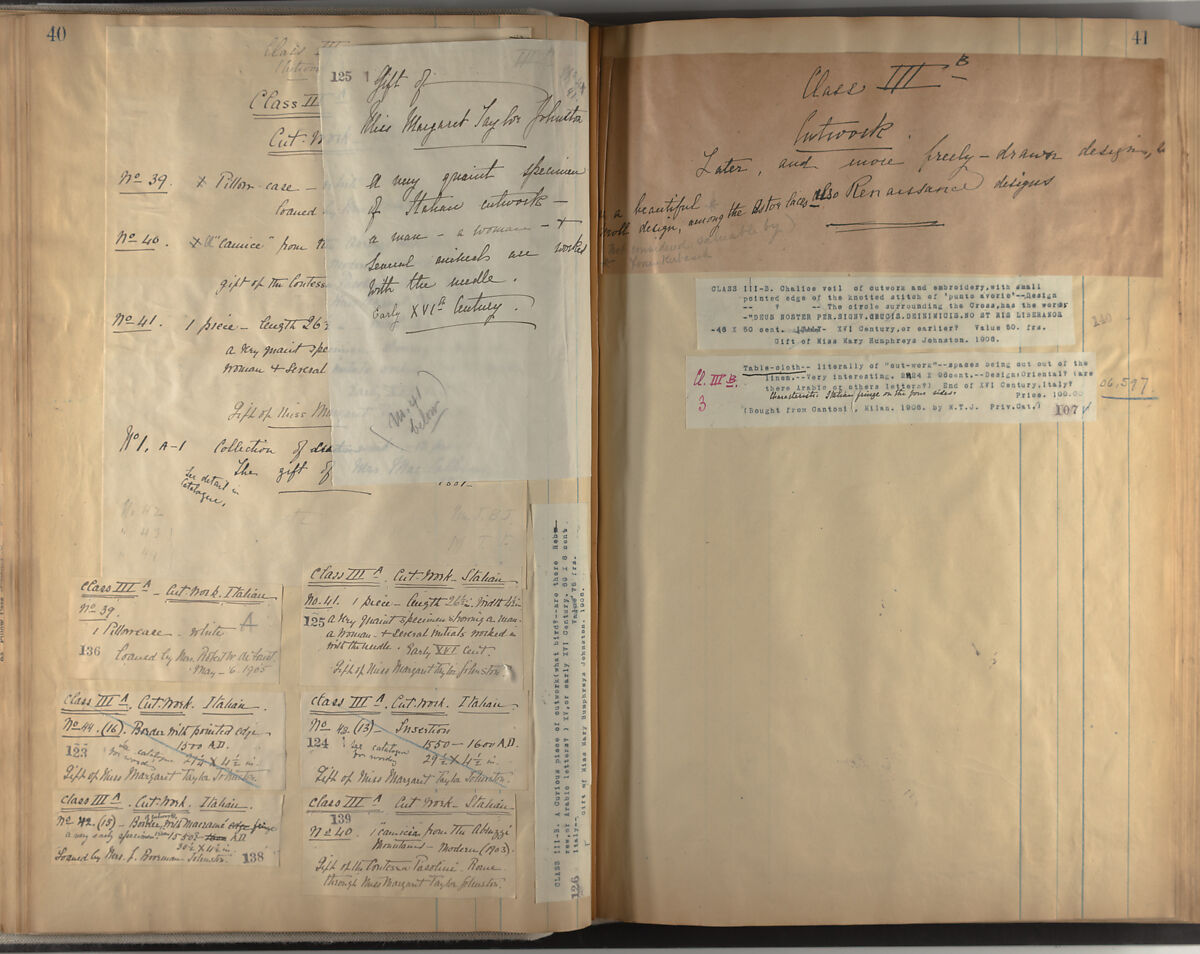 40
Class III
Class II
Cut-W
No 39. x Pillow-case —
loaned
No 40. x "camice" from
gift of the Contess
No 41. 1 piece — length 26½
a very quaint spe
woman & several
Gift of Miss M
No 1. A-1 Collection of
The gift of
See detail in
Catalogue.
No 42
" 43
" 44
125 1
Gift of
Miss Margaret Taylor Johnston
A very quaint specimen
of Italian cutwork —
a man — a woman — +
several initials are worked
with the needle.
Early XVIth Century.
No. 41
below
Class III A — Cut Work. Italian
No 39.
1 Pillowcase — White A
136
Loaned by Mrs. Robert W. de Forest
May — 6. 1905
Class III A. Cut Work — Italian
No. 41. 1 piece — length 26½ in. width 4½ in
125 a very quaint specimen showing a man —
a woman — & several initials worked in
with the needle. Early XVI Cent.
Gift of Miss Margaret Taylor Johnston
Class III A. Cut Work. Italian.
No 44. (16). Border with pointed edge
1500 A.D.
123 See catalogue
for wording
21¼ X 4½ in.
Gift of Miss Margaret Taylor Johnston.
Class III A. Cut Work. Italian.
No 43. (13) — Insertion
124 See catalogue
for wording
1550 — 1600 A.D.
29½ X 4½ in.
Gift of Miss Margaret Taylor Johnston.
Class III A. Cut Work. Italian.
No 42. (15) — Border, with Macramé fringe
a very early specimen 1550? A.D
30½ X 4½ in.
Loaned by Mrs. J. Boorman Johnston. 138
Class III A Cut Work — Italian
139
No 40. 1 "camicia" from the Abruzzi
Mountains — Modern (1903).
Gift of the Contessa Pasolini — Rome
through Miss Margaret Taylor Johnston.
CLASS III-B. A Curious piece of cutwork(what bird?--are there Hebrew,or Arabic letters? ) XV,or early XVI Century.
Italy-- Value 75 frs.
Gift of Miss Mary Humphreys Johnston. 1906.
126
41
Class III B
Cutwork.
Later, and more freely-drawn designs,
a beautiful
design, among the Astor laces also Renaissance designs
CLASS III-B. Chalice veil of cutwork and embroidery,with small
pointed edge of the knotted stitch of 'punto avorio'--Design
-- ? -- The circle surrounding the Cross,has the words
-"DEUS NOSTER PER.SIGNV.CRUCIS.DEINIMICIS.NO ST RIS LIBERANOR
-46 X 50 cent. XVI Century,or earlier? Value 50. frs.
Gift of Miss Mary Humphreys Johnston. 1906.
140
Cl. III B.
3
Table-cloth-- literally of "cut-work"--spaces being cut out of the
linen.--Very interesting. 124 X 96cent.--Design:Oriental? (are
there Arabic or others letters?) End of XVI Century.Italy?
Characteristic Italian fringe on the four sides. Price. 100.00
(Bought from Cantoni, Milan. 1906. by M.T.J. Priv.Cat.) 107
06,597